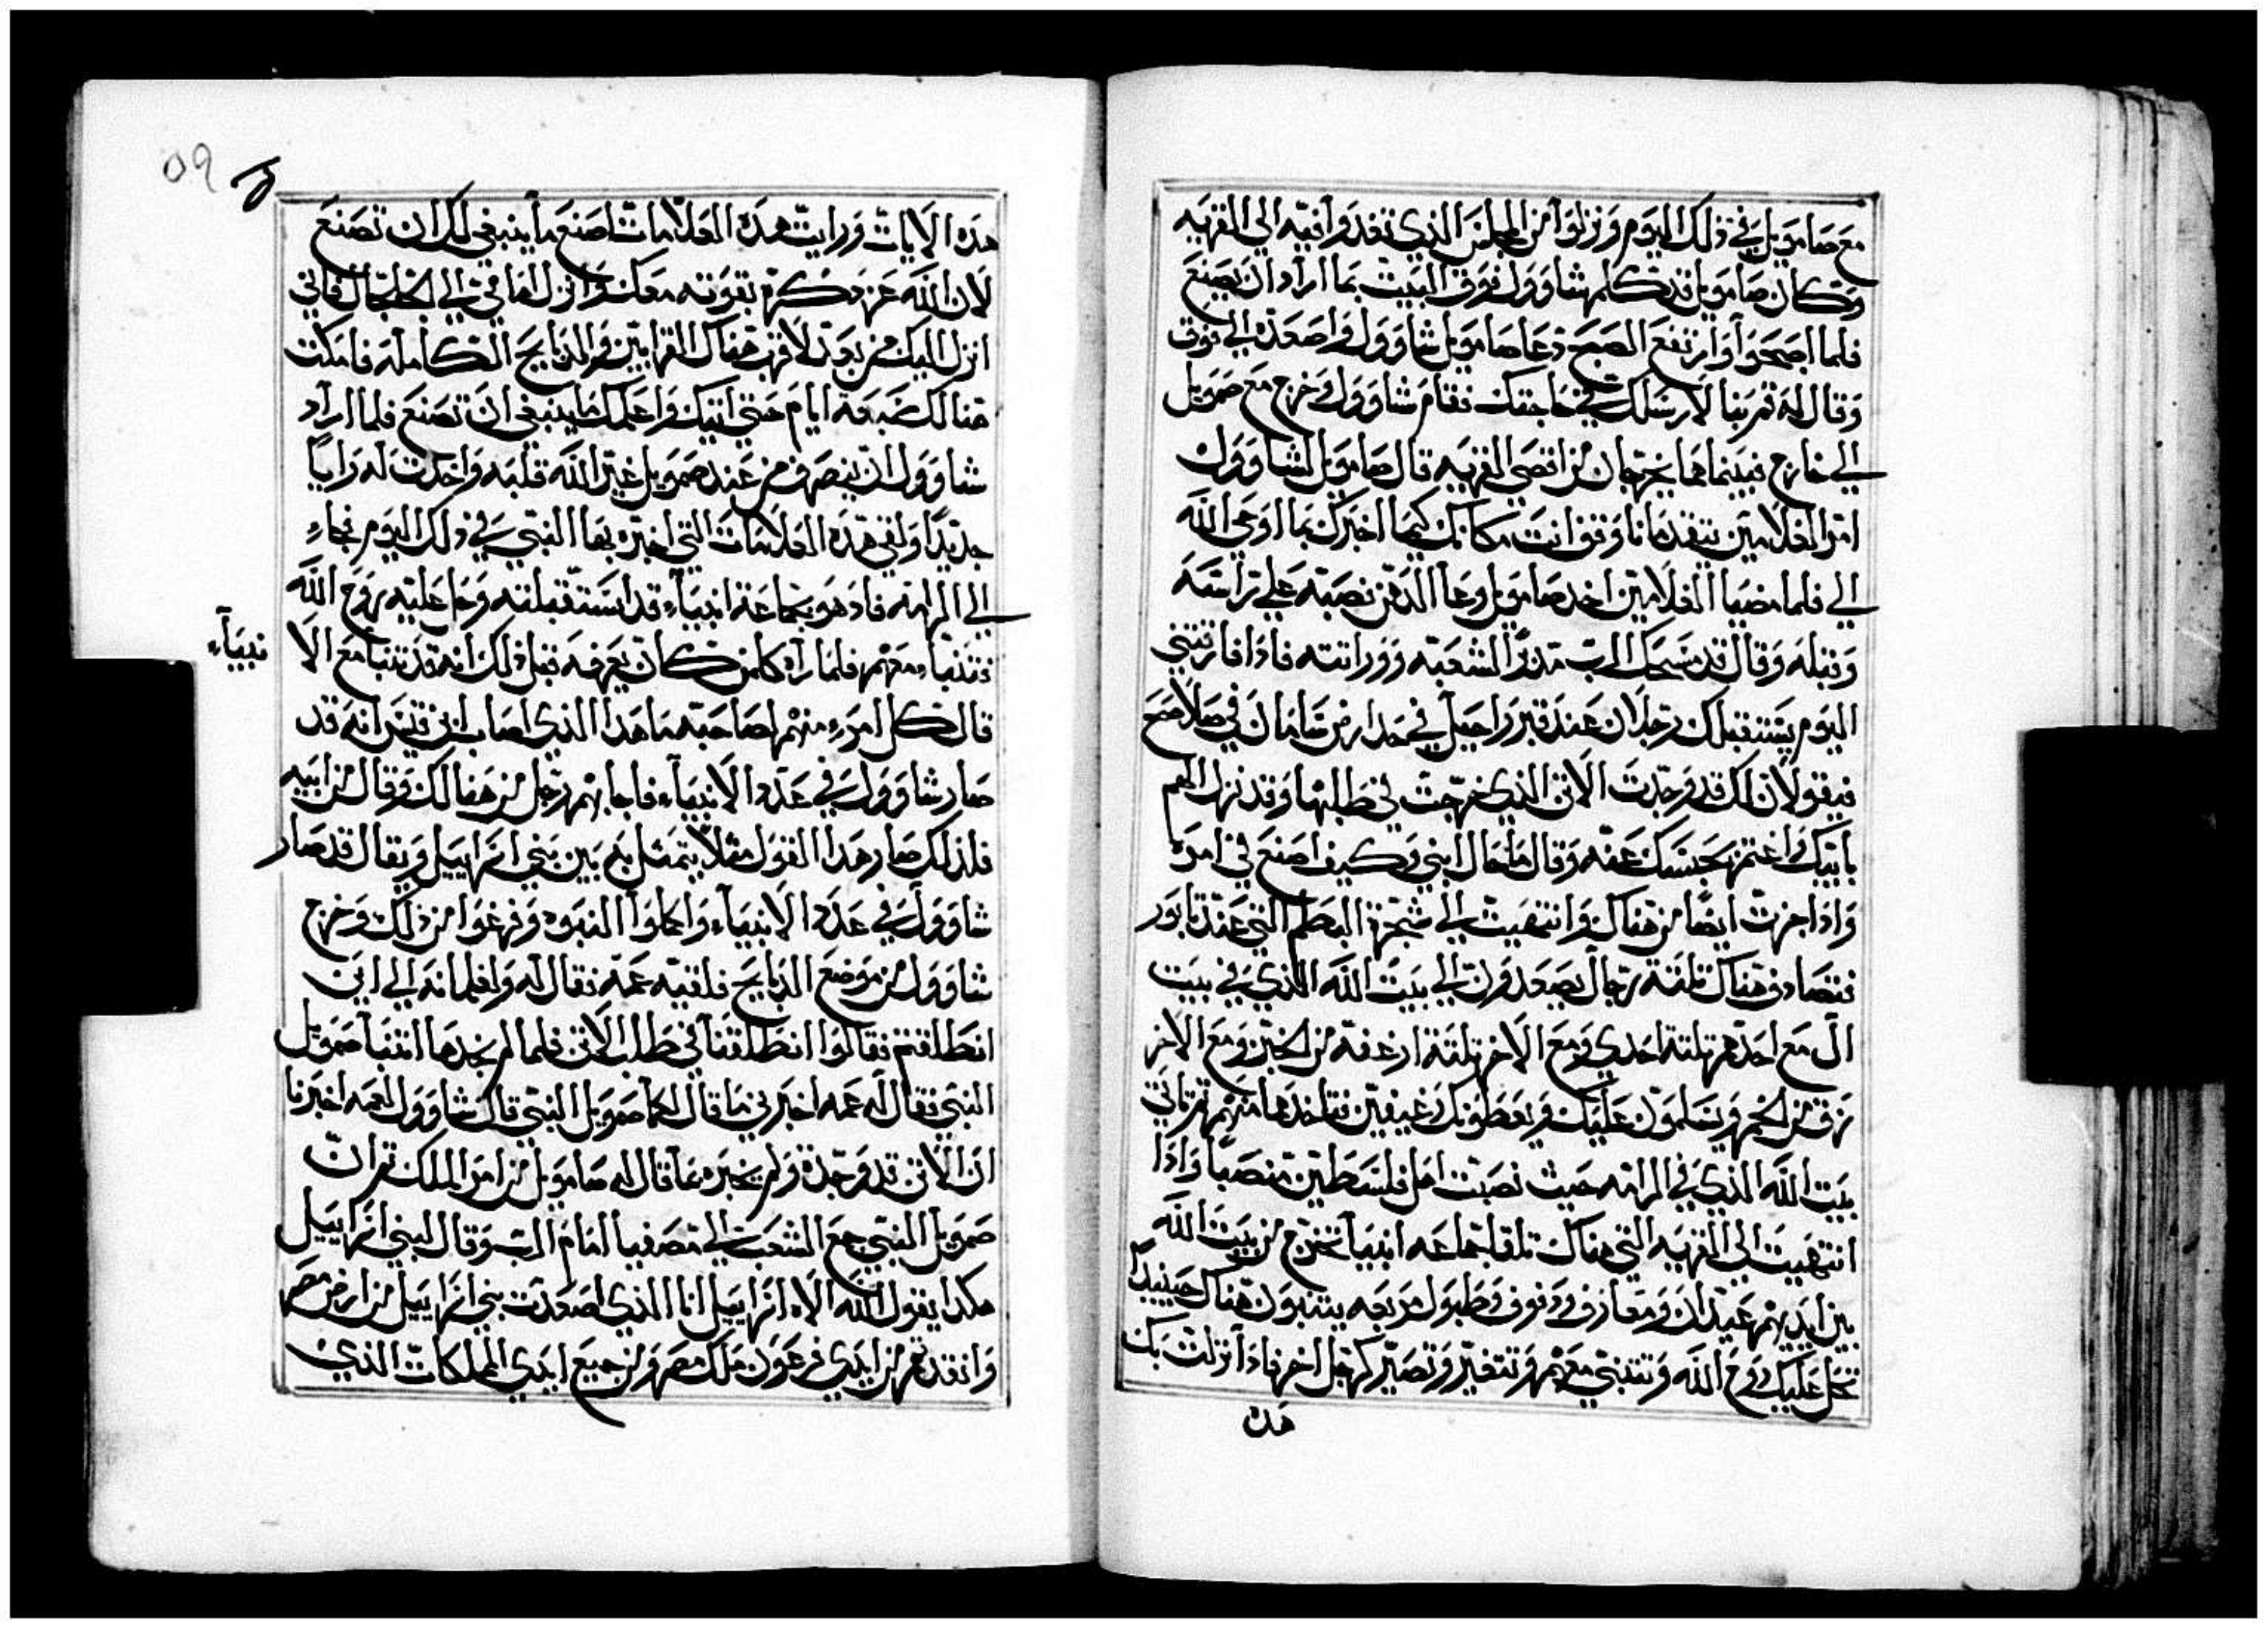 مع صامويل في ذلك اليوم ونزلوا من المجلس الذي تغدوا فيه الي القريه
وكان صامويل قد كلم شاوول فوق البيت بما اراد ان يصنع
فلما اصبحوا وارتفع الصبح دعا صامويل شاوول واصعده الي فوق
وقال له قم بنا لارسلك في حاجتك فقام شاوول وخرج مع صمويل
الي خارج فبينما هما يخرجان من اقصي القريه قال صامويل لشاوول
امر الغلامين يتقدمانا وقف انت مكانك كيما اخبرك بما اوحي الله
الي فلما مضيا الغلامين اخد صامويل وعا الدهن نصبه علي راسه
وقبله وقال قد مسحك الرب مدبر الشعبه وورانته فاذا فارقتني
اليوم يستقبلك رجلان عند قبر راحيل في حد ارض بنيامان في صلاصح
فيقولان لك قد وجدت الاتن الذي خرجت في طلبها وقد نزل الهم
بابيك واغتم بحبسك عنه وقال ما حال ابني وكيف اصنع في امره
واذا جزت ايضا من هناك وانتهيت الي شجرة البطم التي عند تابور
فتصادف هناك ثلثة رجال يصعدون الي بيت الله الذي في بيت
ال مع احدهم ثلثة اجدي ومع الاخر ثلثة ارغفة من الخبز ومع الاخر
زق من الخمر ويسلمون عليك ويعطونك رغيفين فتاخدها منهم ثم تاتي
بيت الله الذي في الرامه حيث نصبت اهل فلسطين منصبا واذا
انتهيت الي القريه التي هناك تلقا جماعه انبيا تخرج من بيت الله
بين ايديهم عيدان ومعازف ودفوف وطبول مربعه يتنبون هناك حينيدا
تحل عليك روح الله وتتنبي معهم وتتغير وتصير كرجل اخر فاذا نزلت بك
هده
٥٩
هذه الايات ورايت هذه العلامات اصنع ما ينبغي لك ان تصنع
لان الله عز ذكره بقوته معك وانزل امامي الي الجلجال فاني
انزل اليك من بعد لاقرب هناك القرابين والذبايح الكاملة فامكث
هنالك سبعة ايام حتي اتيك واعلمك ما ينبغي ان تصنع فلما اراد
شاوول ان ينصرف من عند صمويل غير الله قلبه واحدث له رايا
جديدا ولقي هذه العلامات التي اخبره بها النبي في ذلك اليوم فجاء
الي الرامه فاذ هو بجماعة انبياء قد استقبلته وحل عليه روح الله
فتنباء معهم فلما راه كلمن كان يعرفه قبل ذلك انه قد تنبا مع الا نبيآء
قال كل امرء منهم لصاحبه ما هدا الذي اصاب ابن قيس انه قد
صار شاوول في عدد الانبياء فاجابهم رجل من هنالك وقال من ابيه
فلذلك صار هدا القول مثلا يتمثل به بين بني اسراييل ويقال قد صار
شاوول في عدد الانبياء واكملوا النبوه وفرغوا من ذلك وخرج
شاوول من موضع الذبايح فلقيه عمه فقال له ولغلمانه الي اين
انطلقتم فقالوا انطلقنا في طلب الاتن فلما لم نجدها اتينا صمويل
النبي فقال له عمه اخبرني ما قال لكما صمويل النبي قال شاوول لعمه اخبرنا
ان الاتن قد وجدة ولم يخبره بما قال له صامويل من امر الملك ثم ان
صمويل النبي جمع الشعب الي مصفيا امام الرب وقال لبني اسراييل
هكدا يقول الله الاه اسراييل انا الذي اصعدت بني اسراييل من ارض مصر
وانقدتهم من ايدي فرعون ملك مصر ومن جميع ايدي المملكات الذي